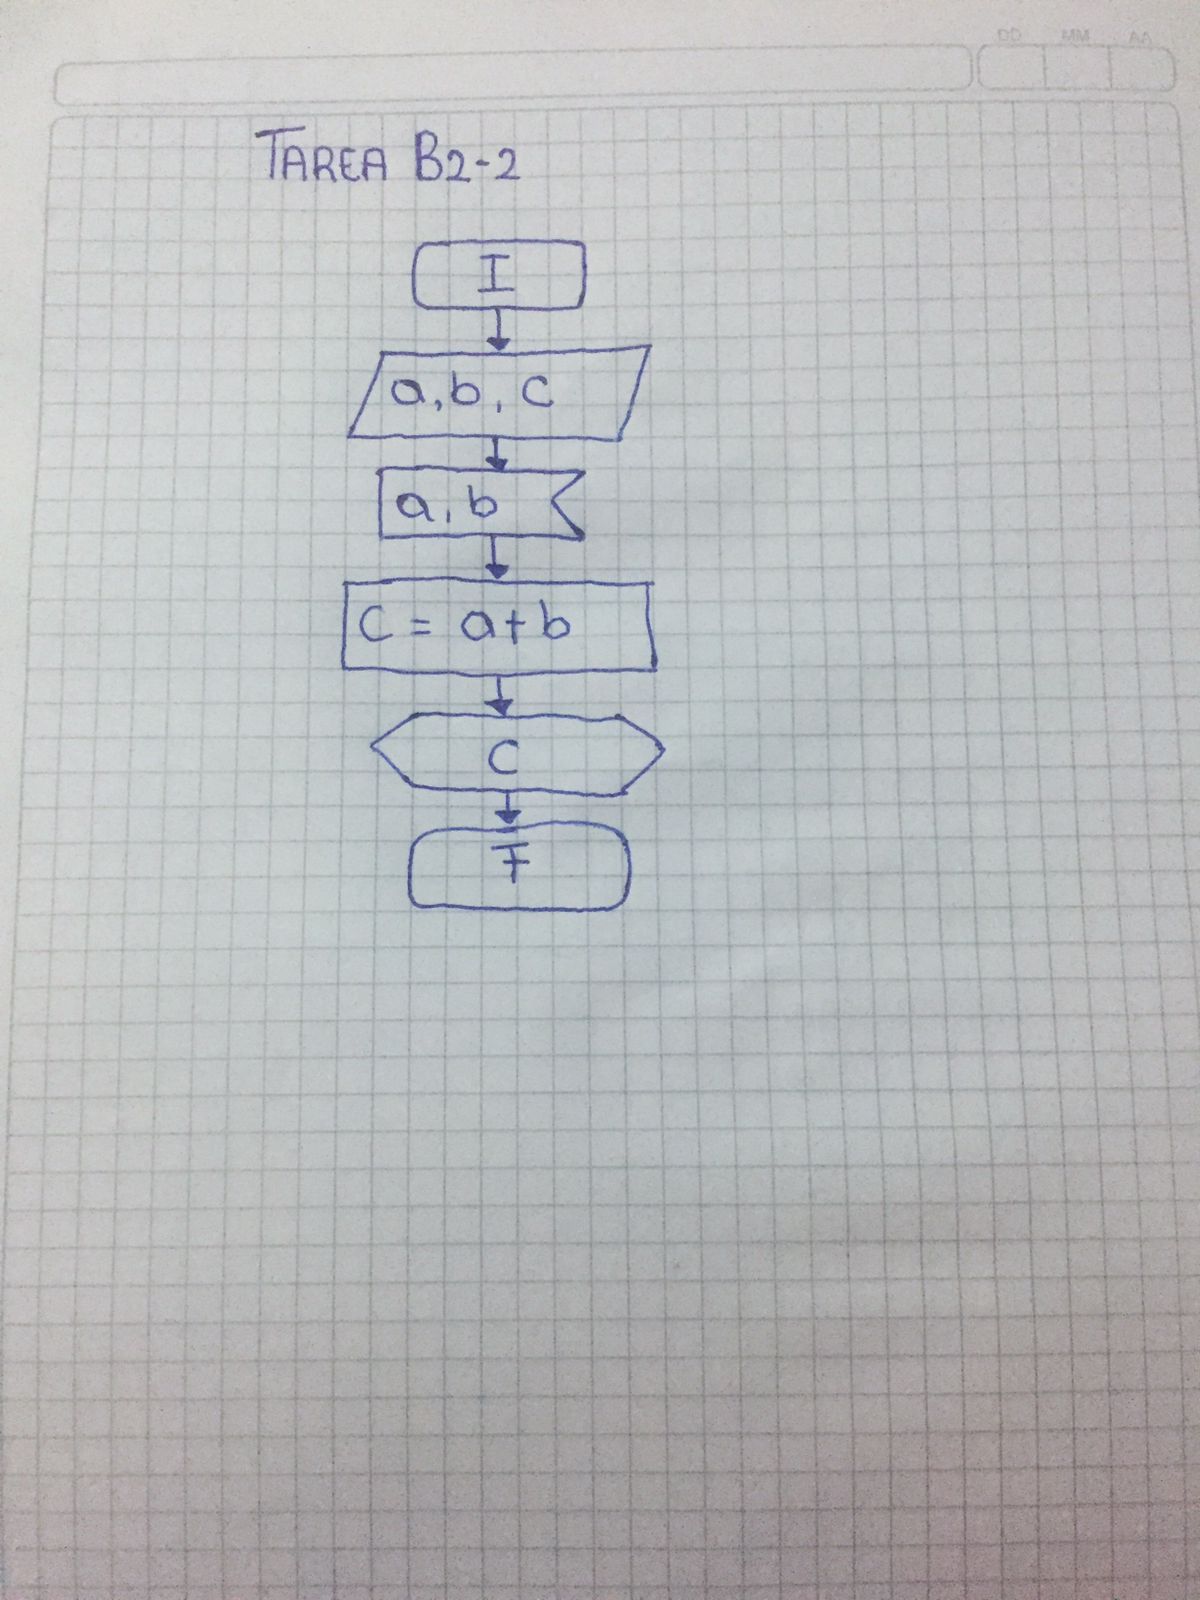 DD MM AA
TAREA B2-2
I
a, b, c
a, b
C = a+b
C
F